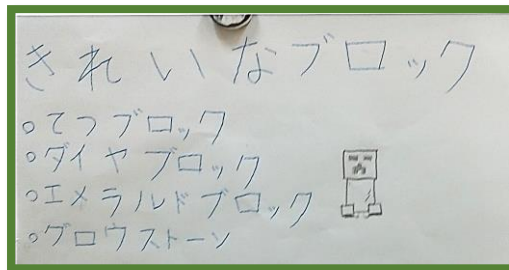 きれいなブロック
○てつブロック
○ダイヤブロック
○エメラルドブロック
○グロウストーン